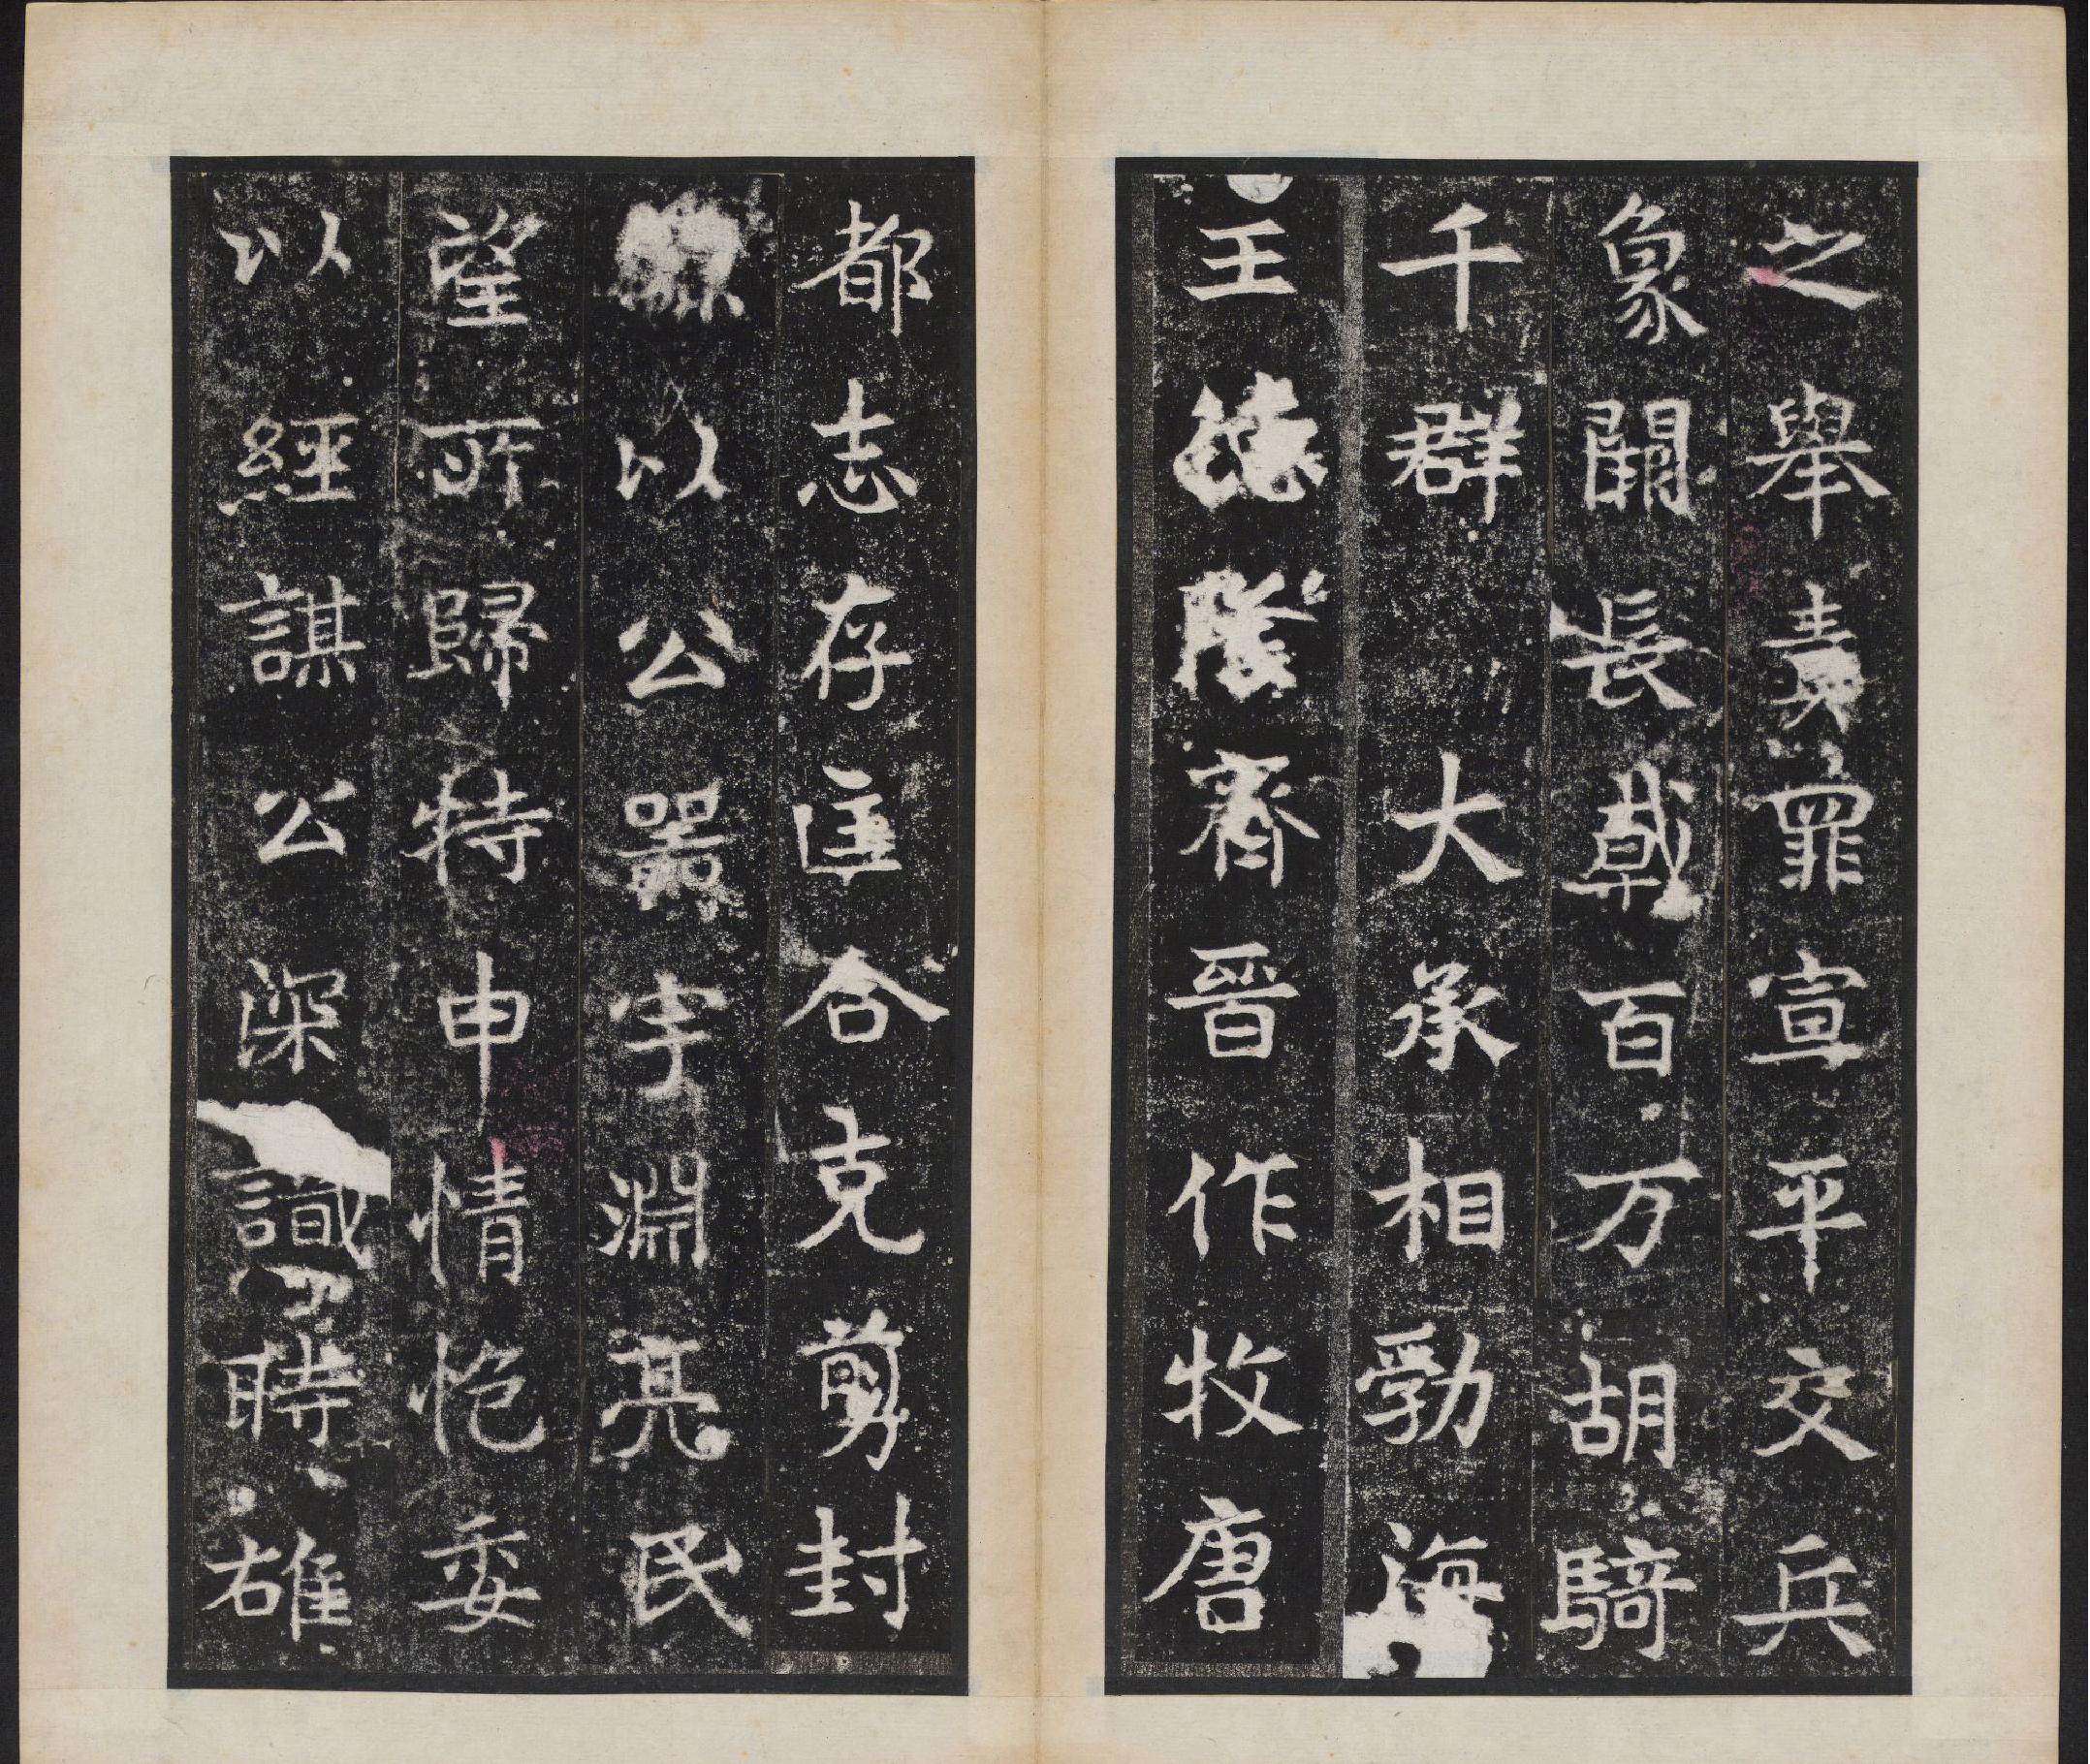 之舉責罪宣平交兵
象闕長戟百万胡騎
千群大丞相勃海
王德隆齊晉作牧唐
都志存匡合克剪封
以公器宇淵亮民
望所歸特申情抱委
以經謀公深識時雄